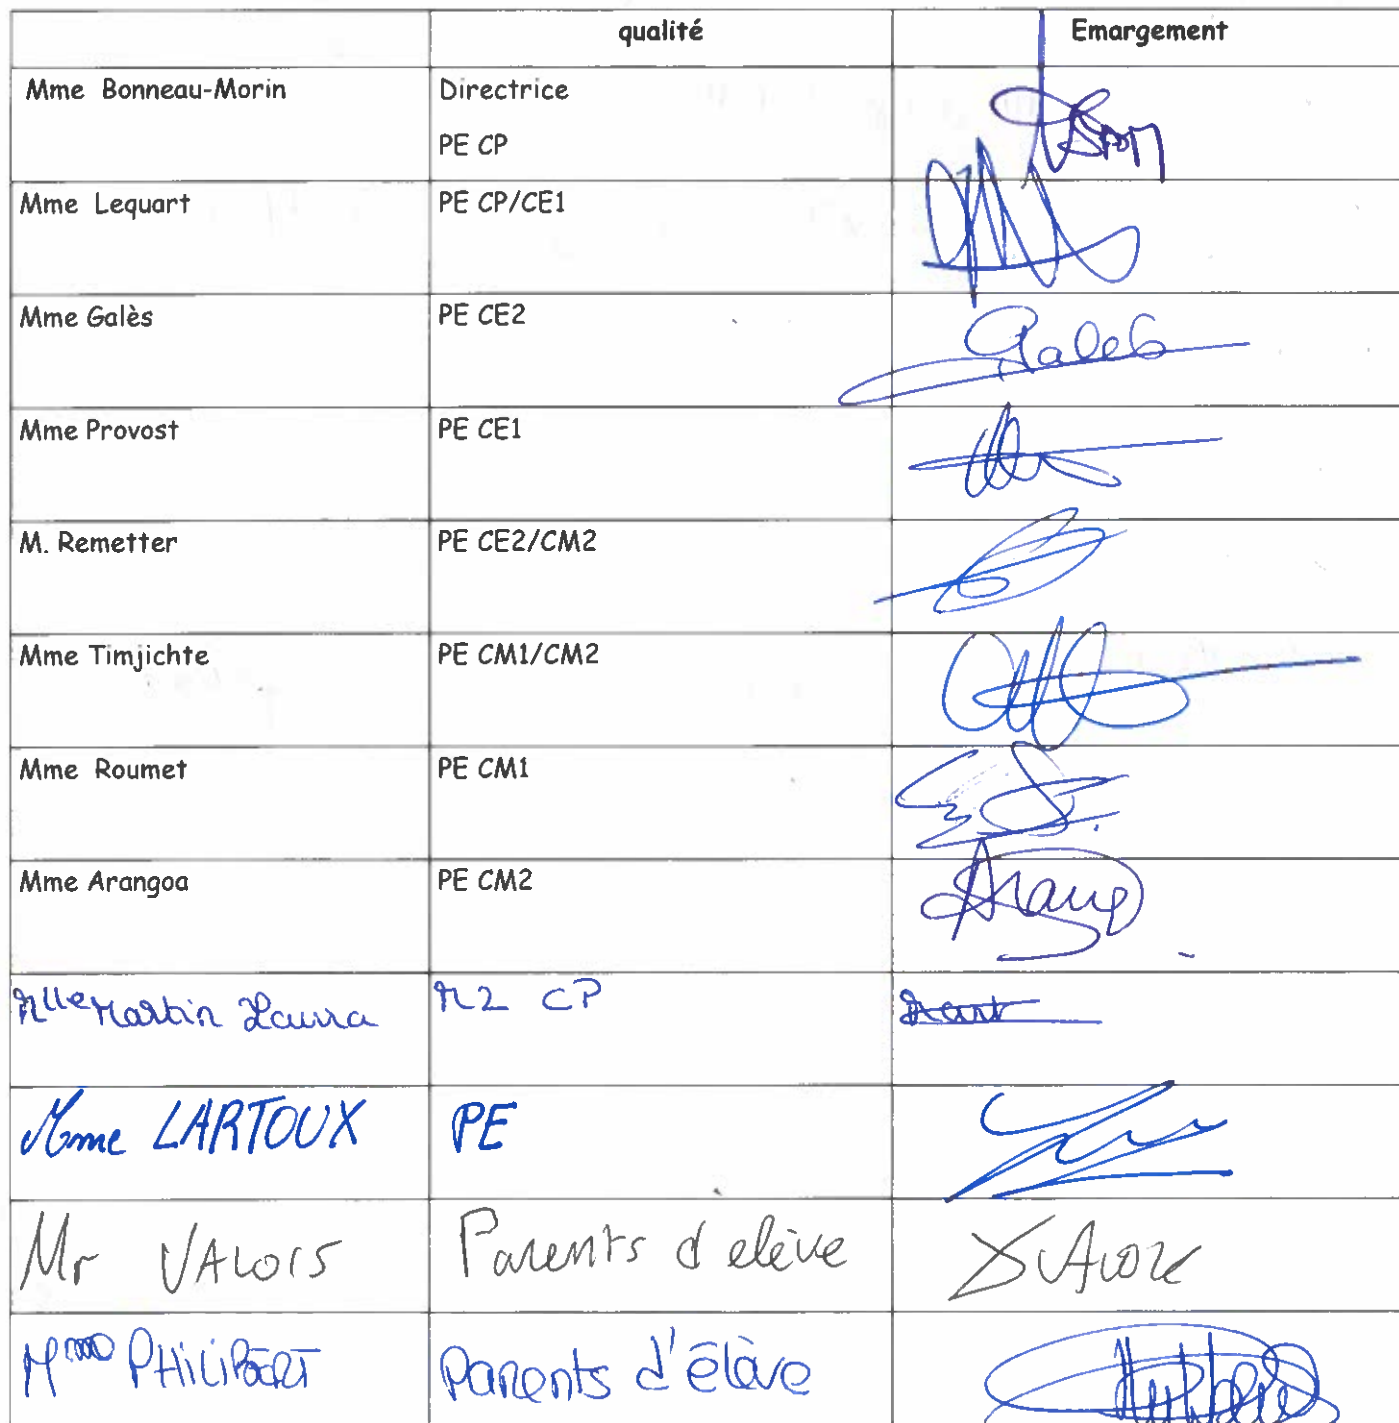 qualité Emargement
Mme Bonneau-Morin Directrice
PE CP
Mme Lequart PE CP/CE1
Mme Galès PE CE2
Mme Provost PE CE1
M. Remetter PE CE2/CM2
Mme Timjichte PE CM1/CM2
Mme Roumet PE CM1
Mme Arangoa PE CM2
Mlle Martin Laura M2 CP
Mme LARTOUX PE
Mr VALOIS Parents d elève
Mme PHILIBERT Parents d'élève